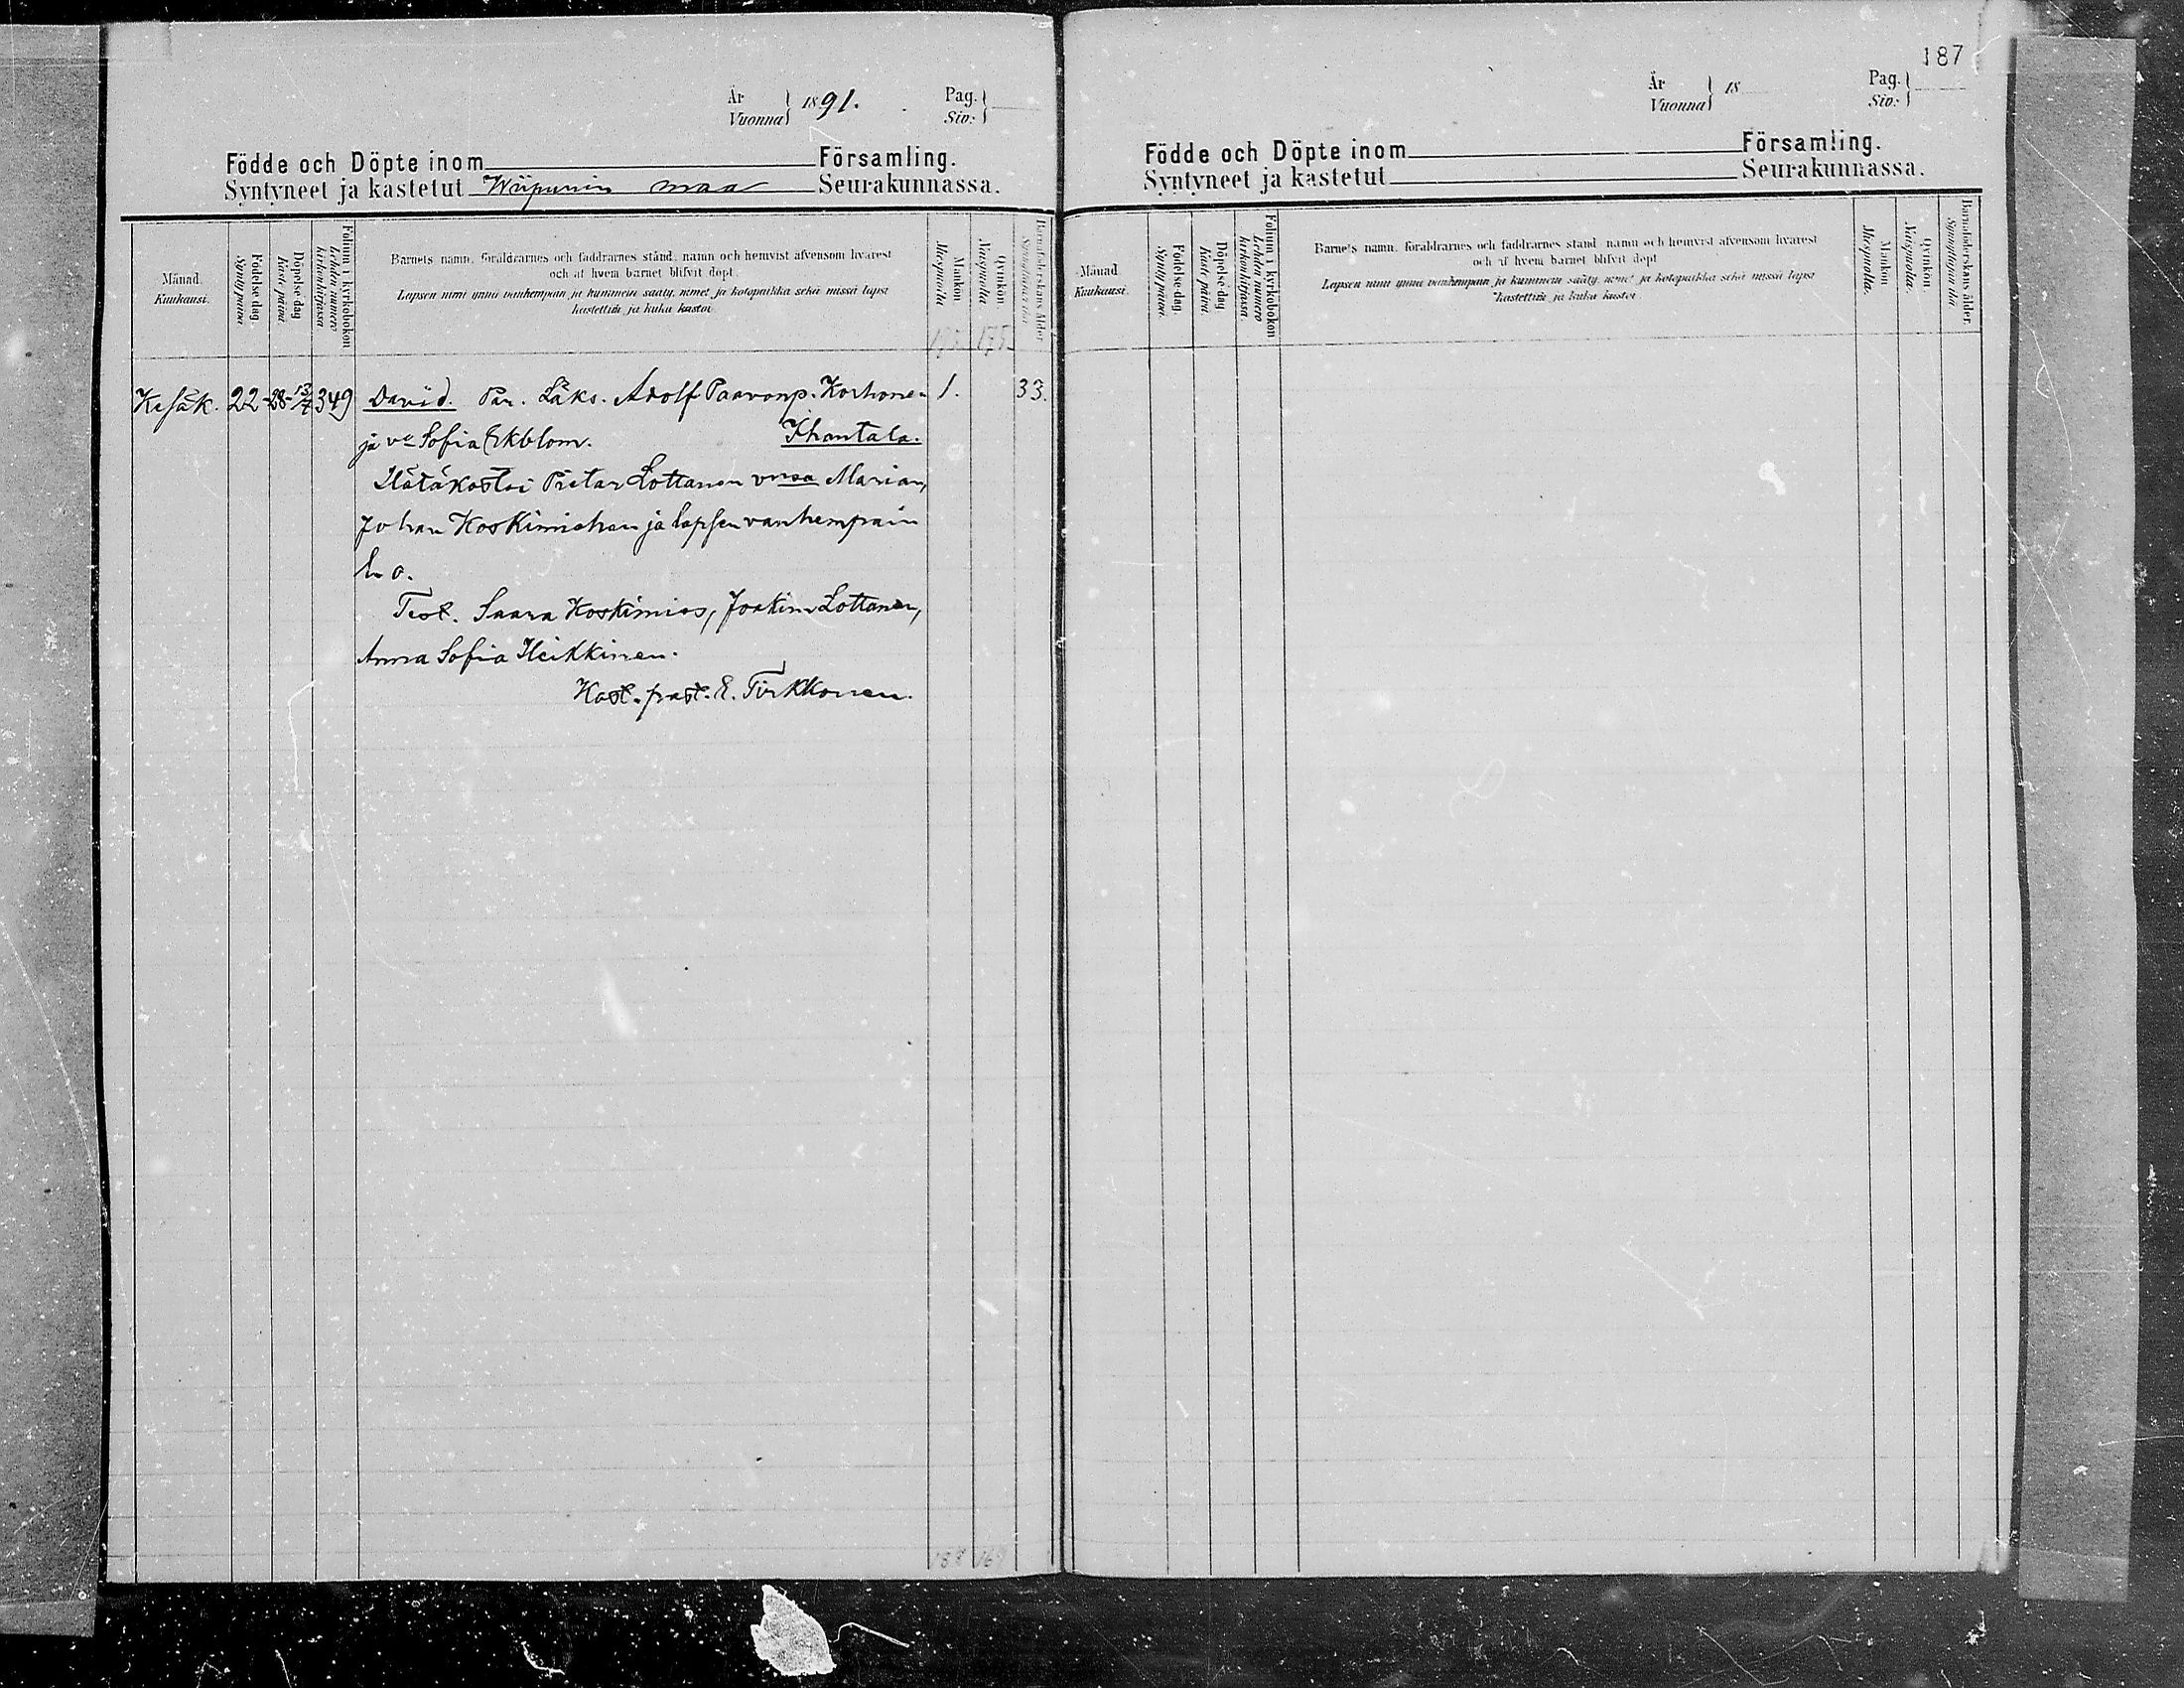 År
Vuonna } 1891.
Pag.
Siv: }
Födde och Döpte inom Församling.
Syntyneet ja kastetut Wiipurin maa Seurakunnassa.
Månad.
Kuukausi.
Födelse dag.
Syntypäivä
Döpelse-dag
Kaste-päivä
Folium i kyrkoboken
Lehden numero
kirkonkirjassa
Barnets namn, föräldrarnes och faddrarnes stånd, namn och hemvist äfvensom hvarest
och af hvem barnet blifvit döpt.
Lapsen nimi ynnä vanhempain ja kummein sääty, nimet ja kotopaikka sekä missä lapsi
kastettiin ja kuka kastoi
Mankön
Miespuolta
Qvinkön.
Naispuolta
Barnaföderskans ålder
175
Kesäk. 22 28 13/7 349 David. Par. Läks. Adolf Paavonp. Korhonen 1. 33.
ja vo Sofia Ekblom. Ihantala.
Hätäkastoi Pietar Lottanen vnsa Marian,
Johan Koskimiehen ja lapsen vanhempain
l.o.
Test. Saara Koskimies, Joakim Lottanen,
Anna Sofia Heikkinen.
Kast. past. E. Tirkkonen.
188 169
187
År
Vuonna } 18
Pag.
Siv: }
Födde och Döpte inom Församling.
Syntyneet ja kastetut Seurakunnassa.
Månad
Kuukausi.
Födelse dag.
Syntypäivä.
Döpelse-dag
Kaste-päivä
Folium i kyrkoboken
Lehden numero
kirkonkirjassa.
Barnets namn, föräldrarnes och faddrarnes stånd, namn och hemvist äfvensom hvarest
och af hvem barnet blifvit döpt
Lapsen nimi ynnä vanhempain ja kummein sääty, nimet ja kotopaikka sekä missä lapsi
kastettiin ja kuka kastoi.
Mankön
Miespuolta.
Qvinkön
Naispuolta.
Barnaföderskans ålder.
Synnyttäjän ikä.